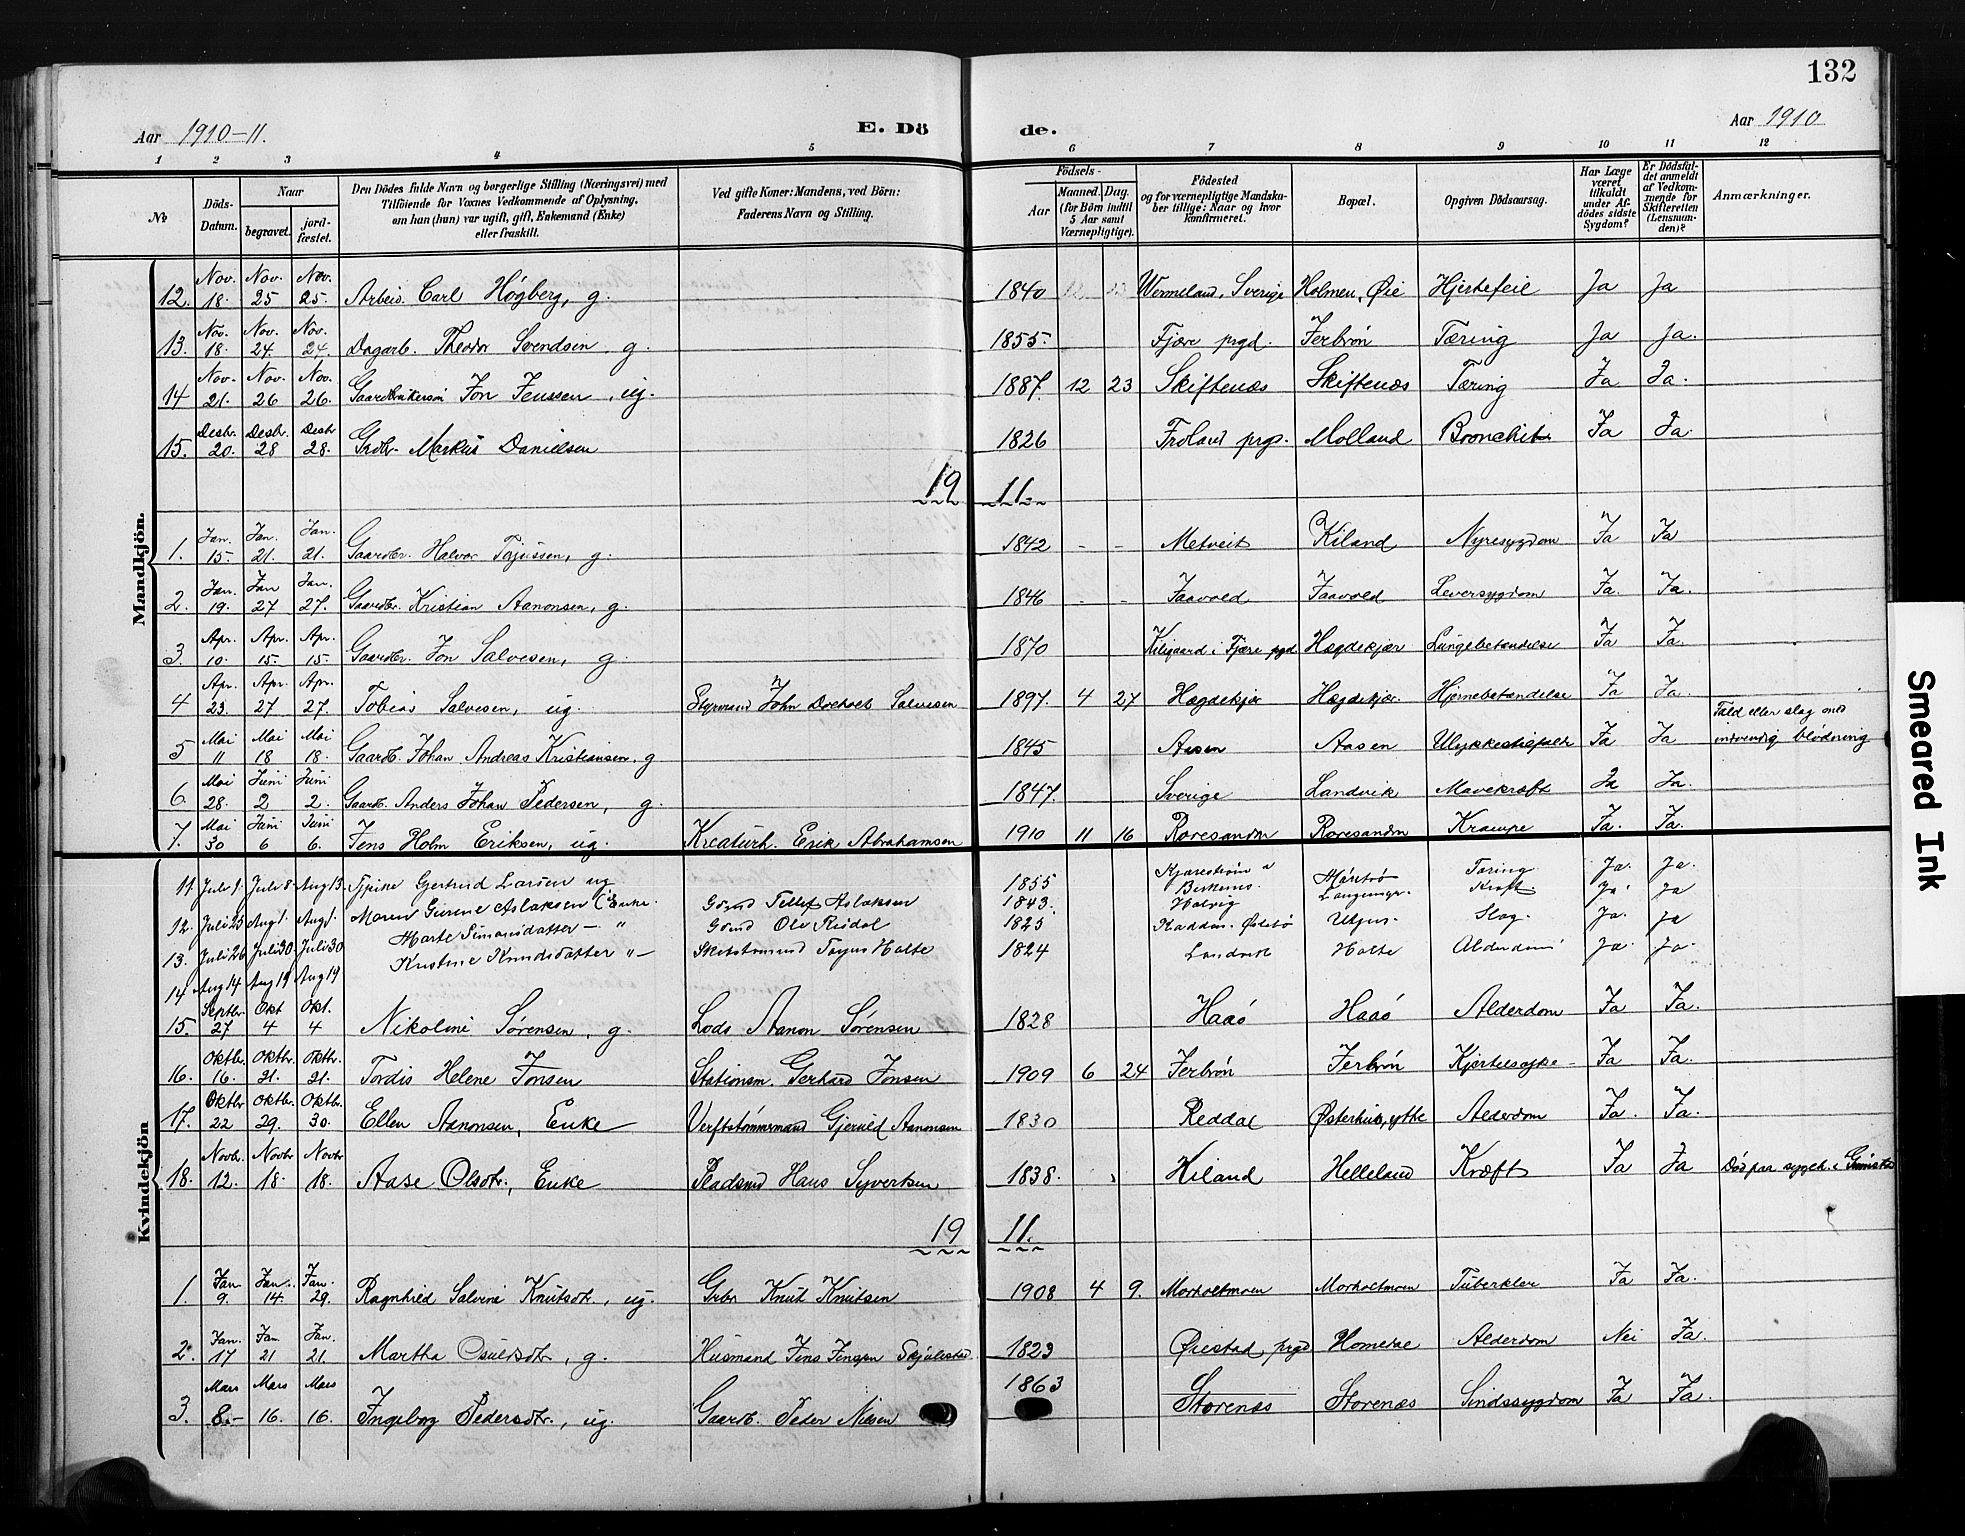 132
Aar 1910-11.
E. Dö
de.
Aar 1910
1 2 3 4 5 6 7 8 9 10 11 12
No
Döds-Datum.
Naar
begravet.
jordfæstet.
Den Dödes fulde Navn og borgerlige Stilling (Næringsvei) med
Tilföiende for Voxnes Vedkommende af Oplysning,
om han (hun) var ugift, gift, Enkemand (Enke)
eller fraskilt.
Ved gifte Koner: Mandens, ved Börn:
Faderens Navn og Stilling.
Födsels-
Aar
Maaned. Dag.
(for Börn indtil
5 Aar samt
Værnepligtige).
Födested
og for værnepligtige Mandska-
ber tillige: Naar og hvor
konfirmeret.
Bopæl.
Opgiven Dödsaarsag.
Har Læge
været
tilkaldt
under Af-
dödes sidste
Sygdom?
Er Dödsfal-
det anmeldt
af Vedkom-
mende for
Skifteretten
(Lensman-
den)?
Anmærkninger.
Mandkjön.
12. Nov. 18. Nov. 25 Nov. 25. Arbeid. Carl Högberg, g. 1840 Wermeland, Sverige Holmen, Øie Hjertefeil Ja Ja
13. Nov. 18. Nov. 24. Nov. 24. Dagarb. Theodor Svendsen, g. 1855. Fjære prgd. Ferbrøn Tæring Ja Ja.
14 Nov. 21. Nov. 26 Nov. 26. Jon Jenssen, ug. 1887. 12 23 Skiftenæs Skiftenæs Tæring Ja Ja.
15. Desbr. 20. Desbr. 28 Desbr 28. Grdbr. Markus Danielsen 1826 Froland prgd. Molland Bronchit Ja Ja.
19 11.
1. Jan. 15. Jan. 21. Jan. 21. Gaardbr. Halvor Tarjussen, g. 1842 - - Metveit Kiland Nyresygdom Ja Ja
2. Jan. 19. Jan 27 Jan. 27. Gaardbr. Kristian Aanonsen, g. 1846 - - Faavold Faavold Leversygdom Ja. Ja.
3. Apr. 10. Apr. 15. Apr. 15. Gaardbr. Jon Salvesen, g. 1870 i Fjære pgd Hægdekjær Lungebetændelse Ja Ja.
4 Apr. 23. Apr. 27 Apr. 27 Tobias Salvesen, ug. Styrmand John Salvesen 1897. 4 27 Hægdekjær Hægdekjær. Hjernebetændelse Ja Ja.
5 Mai 11 Mai 18 Mai 18. Gaardb. Johan Andreas Kristiansen, g 1845 Aasen Aasen Ulykkestilfælde Ja Ja Fald eller slag med
indvendig blödning
6. Mai 28. Juni 2 Juni 2. Gaardb. Anders Johan Pedersen, g. 1847. Sverige Landvik Mavekræft Ja Ja.
7. Mai 30 Juni 6 Juni 6. Jens Holm Eriksen, ug. Kreaturh. Erik Abrahamsen 1910 11 16 Roresanden Roresanden Krampe Ja. Ja.
Kvindekjön
11. Juli 1. Juli 8. Aug 13. Gjertrud Larsen ug 1855 Tæring Ja. Ja.
12. Juli 25 Aug 1. Aug 1. Maren Gurine Aslaksen (Enke. Gmd Tellef Aslaksen 1843. Kræft. Ja. Ja
13. Juli 26 Juli 30. Juli 30 Marte Simonsdatter - " Gmd Ole Risdal 1825 Slag. Ja. Ja
14 Aug 14 Aug 19 Aug 19 Kristine Knudsdatter " - Tarjus Holte 1824 Landvik Holte Alderdom Ja. Ja.
15. Septbr. 27 Okt 4 Okt. 4 Nikoline Sørensen, g. Lods Aanon Sørensen 1828 Haaö Haaö Alderdom Ja Ja.
16. Oktbr. 16. Oktbr. 21. Oktbr. 21. Tordis Helene Jonsen Stationsm. Gerhard Jonsen 1909 6 24 Ferbrøn Ferbrøn Kjertelsyke - Ja Ja.
17. Oktbr 22 Oktbr. 29. Oktbr. 30. Ellen Aanonsen, Enke Verftstömmermand Gjeruld Aanonsen 1830 Reddal Østerhus, ytre Alderdom Ja. Ja.
18. Novbr. 12. Novbr 18. Novbr 18. Aase Olsdtr., Enke Pladsmd Hans Syvertsen 1838. Kiland Helleland Kræft Ja Ja Död paa sygeh. i Grimstad
19 11.
1. Jan 9. Jan. 14. Jan. 29. Ragnhild Salvine Knutsdtr., ug. Grbr Knut Knutsen 1908 4 9. Morholtmoen Morholtmoen Tuberkler Ja Ja.
2. Jan. 17 Jan. 21 Jan. 21. Martha Osuldsdtr, g. Husmand Jens Jenssen Skjulestad 1823 Øiestad, prgd Homdal Alderdom Nei Ja.
3. Mars 8. - Mars 16. Mars 16. Ingeborg Pedersdtr., ug. Gaardb. Peder Nilsen 1863 Storenæs Storenæs Sindssygdom Ja Ja.
Smeared Ink